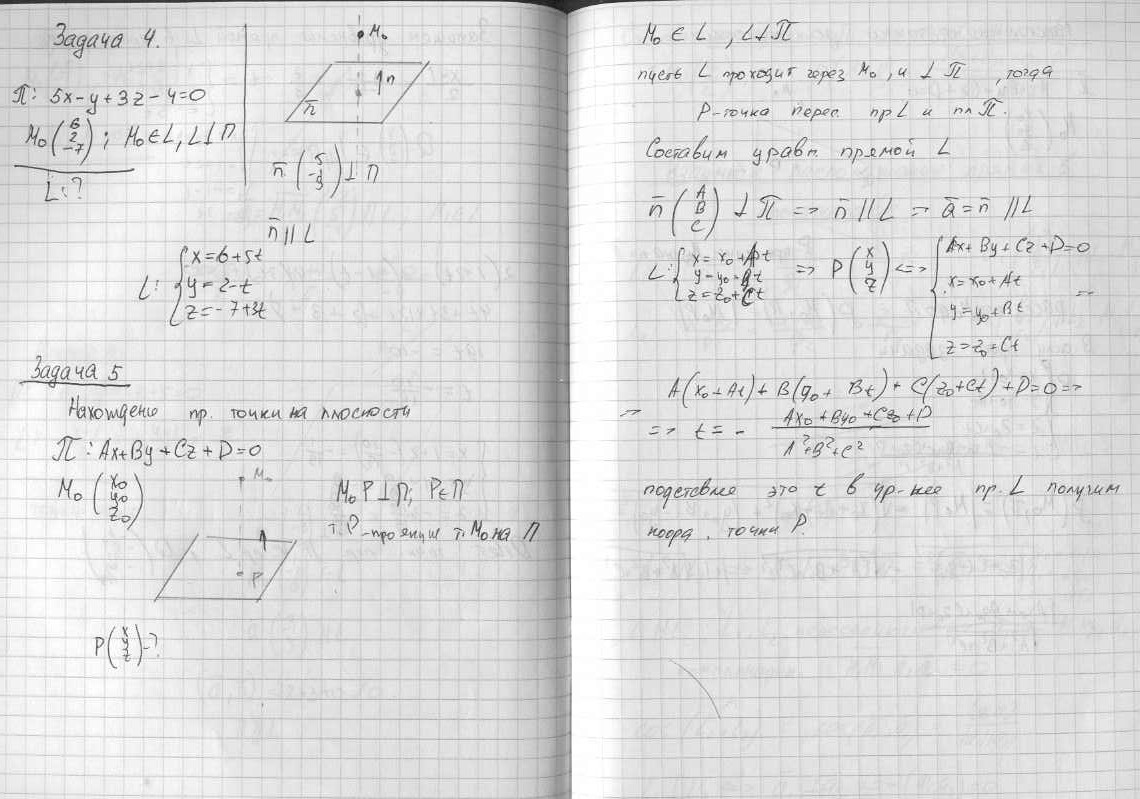 Задача 4.
П: 5x-y+3z-4=0
M₀(6 2 -7); M₀∈L, L⊥П
L: ?
M₀
n
π
n̄(5 -1 3)⊥П
n̄ || L
L: { x=6+5t
y=2-t
z=-7+3t
Задача 5
Нахождение пр. точки на плоскости
П: Ax+By+Cz+D=0
M₀(x₀ y₀ z₀)
M₀
P
M₀P⊥П, P∈П
т.P-проекция т.M₀ на П
P(x y z)-?
M₀∈L, L⊥П
пусть L проходит через M₀, и ⊥П, тогда
P-точка перес. пр L и пл П.
Составим уравн. прямой L
n̄(A B C)⊥П => n̄ || L => ā=n̄ || L
L: { x=x₀+At
y=y₀+Bt
z=z₀+Ct
=> P(x y z) <=> { Ax+By+Cz+D=0
x=x₀+At
y=y₀+Bt
z=z₀+Ct
=>
A(x₀+At)+B(y₀+Bt)+C(z₀+Ct)+D=0 =>
=> t = - (Ax₀+By₀+Cz₀+D)/(A²+B²+C²)
подставляя это t в ур-ние пр. L получим
коорд. точки P.